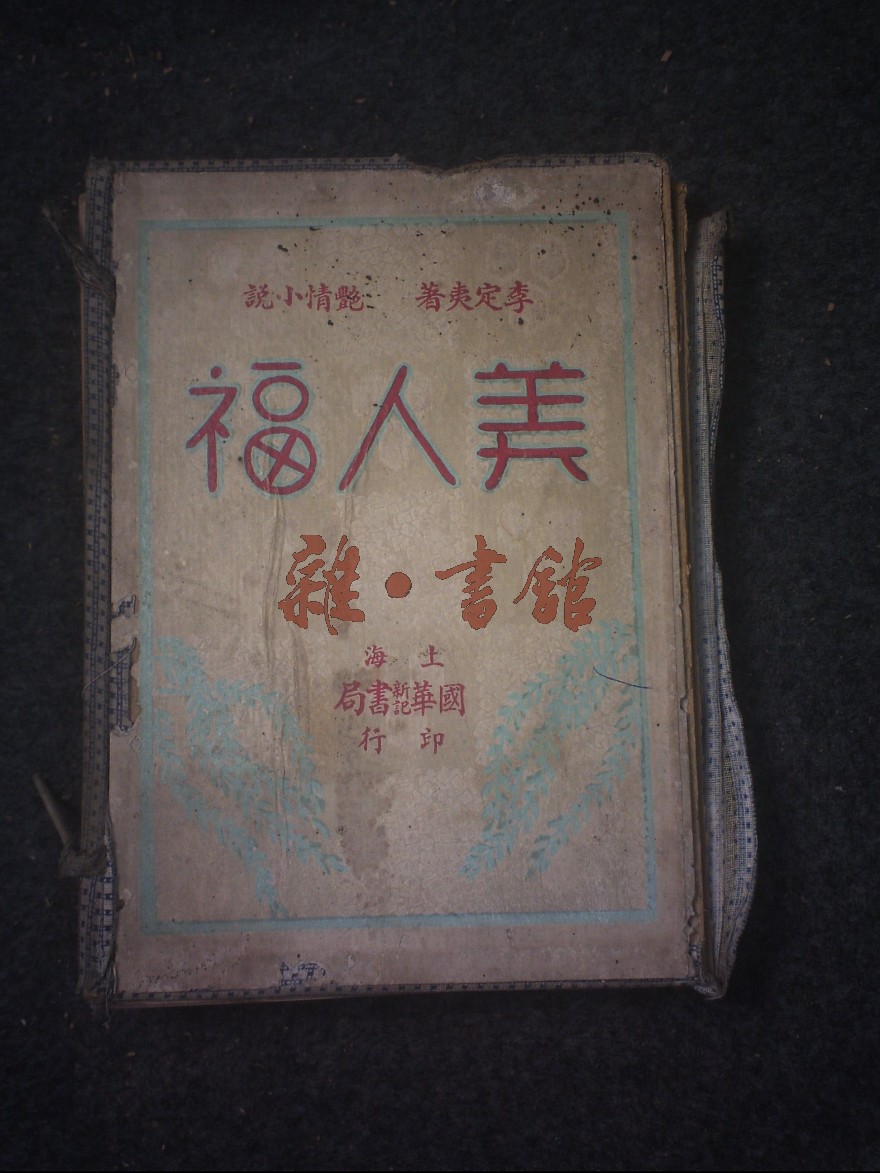 李定夷著 艷情小說
美人福
雜·書館
上海
國華新記書局
印行